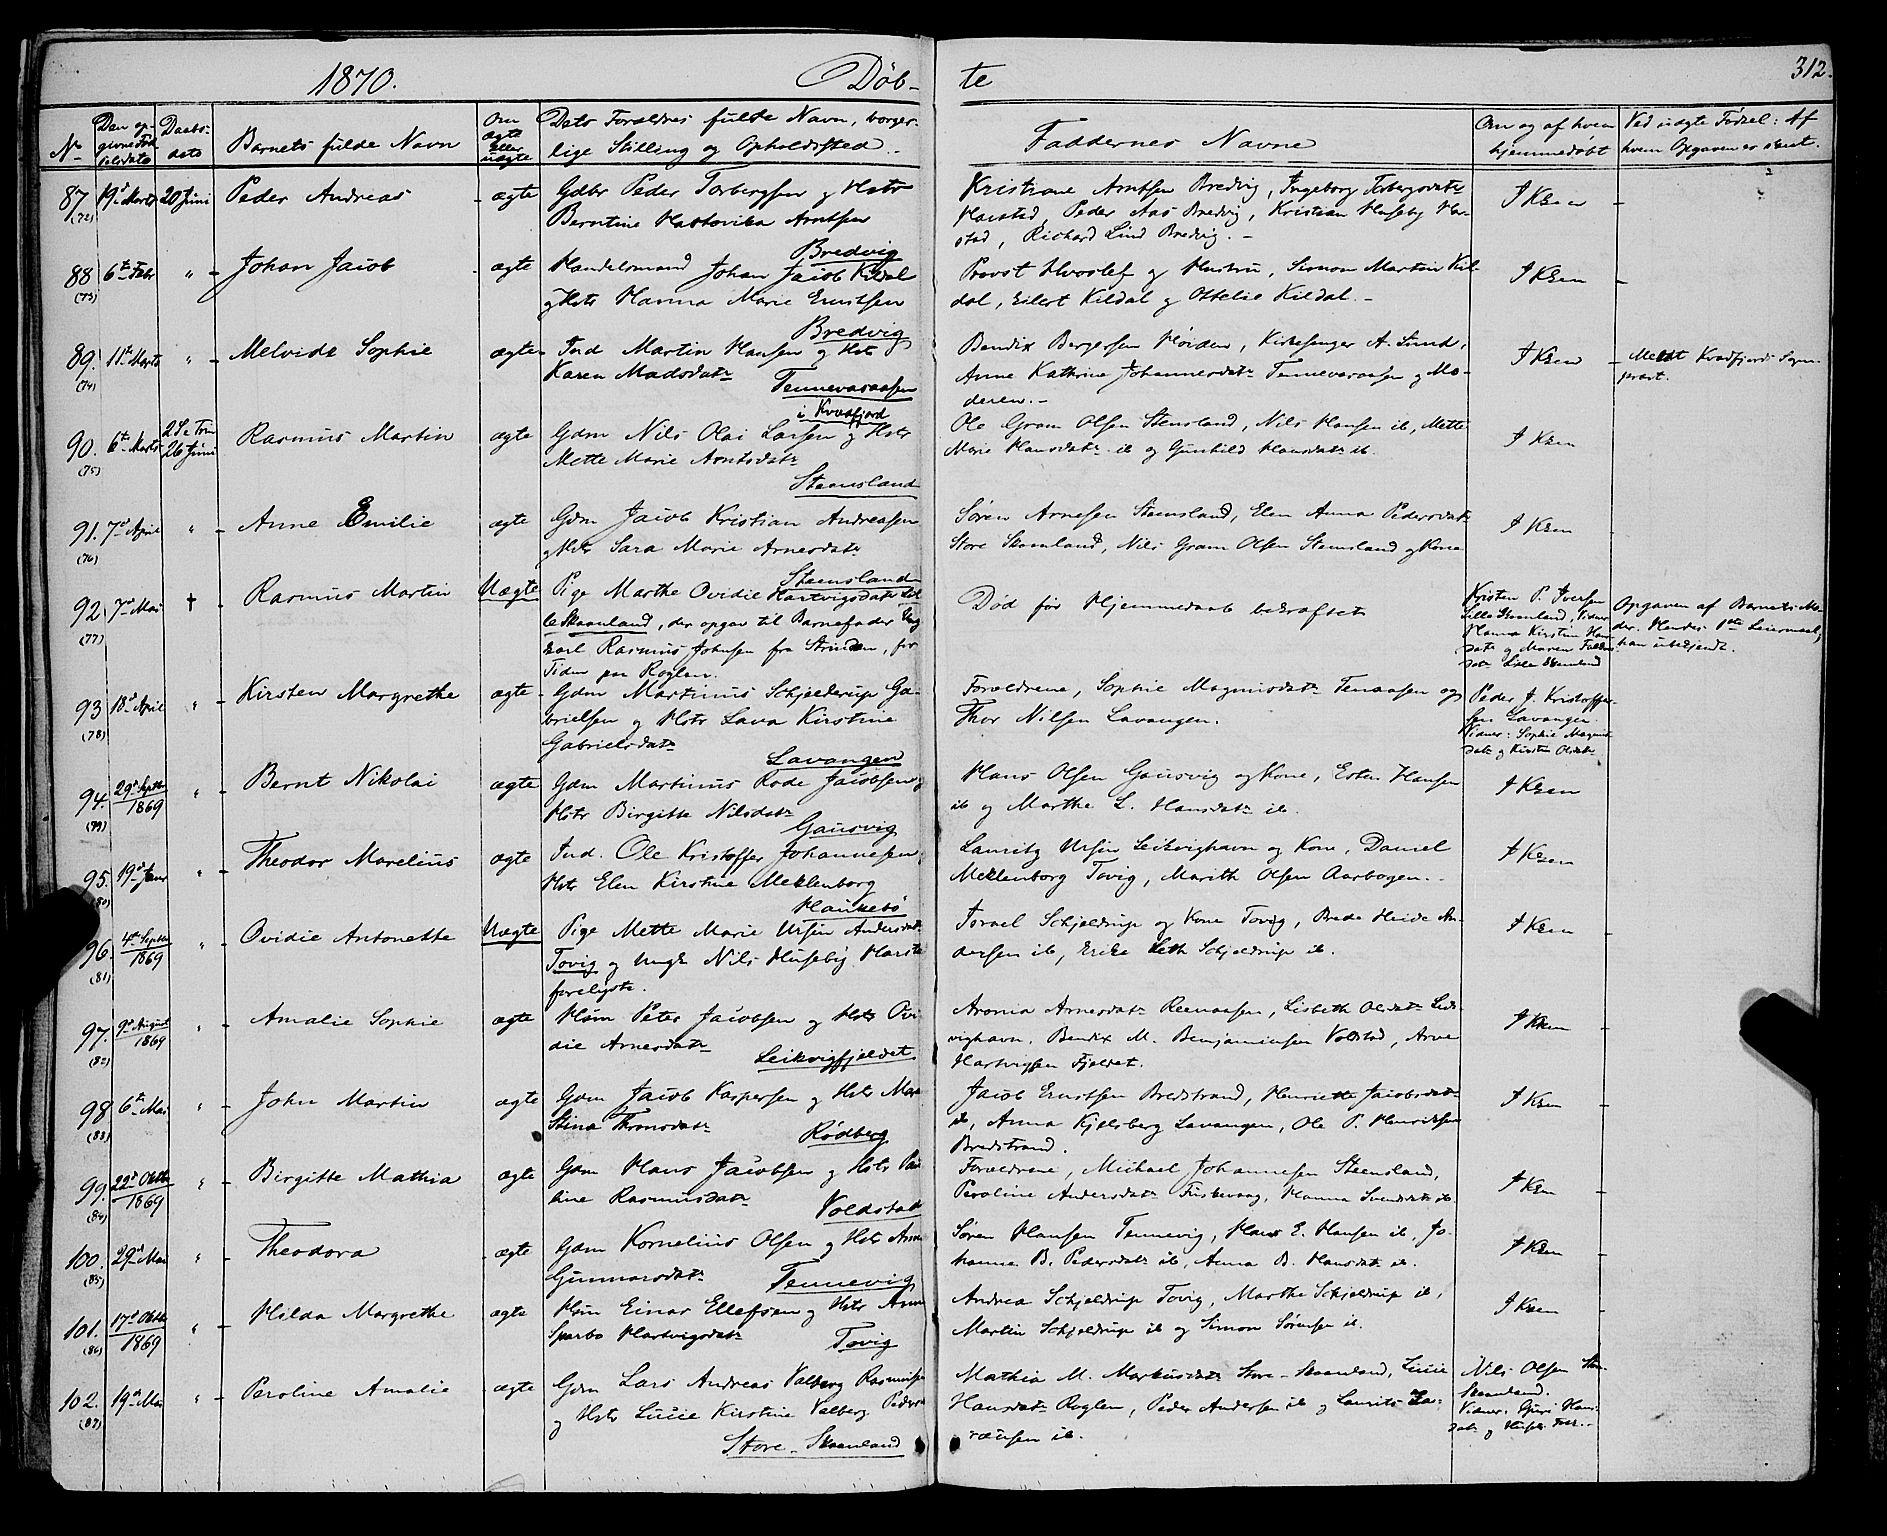 1870. Døb- te 312.
No
Den opgivne Fødselsdato
Daabsdato
Barnets fulde Navn
Om ægte eller uægte
Dets Forældres fulde Navn, borgerlige Stilling og Opholdssted.
Faddernes Navne
Om og af hvem hjemmedøbt
Ved uægte Fødsel: Af hvem Opgaven er skeet.
87. (72) 19de Marts 20 Juni Peder Andreas - ægte Gdbr Peder Torbergsen og Hstr
Berntine Arntsen
Bredvig
Kristiane Arntsen Bredvig, Ingeborg Torbergsdatr
Harstad, Peder Aas Bredvig, Kristian Huseby Harstad, Richard Lind Bredvig. -
I Kken -
88 (73) 6te Febr " - Johan Jacob - ægte Handelsmand Johan Jacob Kildal
og Hstr Hanna Marie Erntsen
Bredvig
Provst Hvoslef og Hustru, Simon Martin Kildal, Eilert Kildal og Ottelie Kildal. -
I Kken -
89. (74) 11te Marts " - Melvide Sophie ægte - Ind Martin Hansen og Hstr
Karen Madsdatr
Tennevasaasen
i Kvæfjord
Bendix Bergersen Høiden, Kirkesanger A. Sund,
Anne Kathrine Johannesdatr Tennevasaasen og Moderen. -
I Kken - Meldt Kvædfjords Sognepræst.
90. (75) 6te Marts 2 S. e Trin 26 Juni Rasmus Martin ægte Gdm Nils Olai Larsen og Hstr
Mette Marie Arntsdatr
Steensland
Ole Gram Olsen Stensland, Nils Hansen ib, Mette
Marie Hansdatr ib og Gunhild Hansdatr ib.
I Kken
91. (76) 7de April " - Anne Emilie ægte Gdm Jacob Kristian Andreassen
og Hstr Sara Marie Arnesdatr
Steensland
Søren Arnesen Steensland, Elen Anna Pedersdatr
Store Skaanland, Nils Gram Olsen Stensland og Kone
I Kken
92 (77) 7de Mai † - Rasmus Martin Uægte Pige Marthe Ovidie Hartvigsdatr Lille Skaanland, der opgav til Barnefader Ungkarl Rasmus Johnsen fra Strinden, for
Tiden paa Roglen.
Død før Hjemmedaab bekræftet
Kristen P. Iversen
Lille Skaanland, Vidner
Hanna Kirstine Hansdatr og Maren
Lille Skaanland
Opgaven af Barnets Moder. Hendes 1ste Leiermaal,
han ubekjendt.
93 (78) 18de April " - Kirsten Margrethe ægte - Gdm Martinus Schjelderup Gabrielsen og Hstr Lava Kirstine
Gabrielsdatr
Lavangen
Forældrene, Sophie Magnusdatr Tenaasen og
Thor Nilsen Lavangen.
Peder J. Kristoffersen Lavangen.
Vidner: Sophie Magnusdatr og Kirsten Olsdatr
94. (79) 29de Septbr 1869 " - Bernt Nikolai ægte Gdm Martinus Rode Jacobsen og
Hstr Birgitte Nilsdatr
Gausvig
Hans Olsen Gausvig og Kone, Esten Hansen
ib og Marthe L. Hansdatr ib.
I Kken
95. (80) 19de Janr " - Theodor Marelius ægte Ind. Ole Kristoffer Johannesen
Hstr Elen Kirstine Meklenborg
Haukebø
Lauritz Ursin Leikvighavn og Kone, Daniel
Meklenborg Tovig, Marith Olsen Aarbogen. -
I Kken
96 (81) 4de Septbr 1869 " - Ovidie Antonette Uægte Pige Mette Marie Ursin Andersdatr
Tovig og Ungk Nils Huseby Harstad
foreligste.
Torael Schjeldrup og Kone Tovig, Brede Heide Andersen ib, Erike Leth Schjeldrup ib.
I Kken -
97. (82) 9de August 1869 " - Amalie Sophie ægte Hsm Peter Jacobsen og Hstr Ovidie Arnesdatr
Leikvigfjeldet
Aronia Arnesdatr Reenaasen, Lisbeth Olsdatr Leikvighavn, Bendix M. Benjaminsen Volstad, Arne
Hartvigsen Fjeldet.
I Kken -
98 (83) 6te Mai " - John Martin ægte Gdm Jacob Kaspersen og Hstr Mar
Stina Thronsdatr
Rødberg
Jacob Erntsen Bredstrand, Henriette Jacobsdatr
ib, Anna Kjelsberg Lavangen, Ole P. Henriksen
Bredstrand.
I Kken -
99. (84) 22de Oktbr 1869 " - Birgitte Mathia ægte Gdm Hans Jacobsen og Hstr Pauline Rasmusdatr
Voldstad
Forældrene, Michael Johannesen Steensland,
Peroline Andersdatr Fiskevaag, Hanna Svendsdatr ib.
I Kken -
100. (85) 29de Mai " - Theodora - ægte Gdm Kornelius Olsen og Hstr Anne
Gunnarsdatr
Tennevig
Søren Hansen Tennevig, Hans E. Hansen ib, Johanna B. Pedersdatr ib, Anna B. Hansdatr ib.
I Kken -
101. (86) 17de Oktbr 1869 " - Hilda Margrethe ægte Hsm Einar Ellefsen og Hstr Anne
Sparbo Hartvigsdatr
Tovig
Andrea Schjeldrup Tovig, Marthe Schjeldrup ib,
Martin Schjeldrup ib og Simon Sørensen ib.
I Kken -
102. (87) 19de Mai " - Peroline Amalie - ægte Gdm Lars Andreas Valberg Rasmussen
og Hstr Lucie Kirstine Valberg Peders
Store-Skaanland
Mathia M. Markusdatr Store-Skaanland, Lucie
Hansdatr Roglen, Peder Andersen ib og Laurits ib.
Nils Olsen Store Skaanland.
Vidner: Guri Hansdatr og